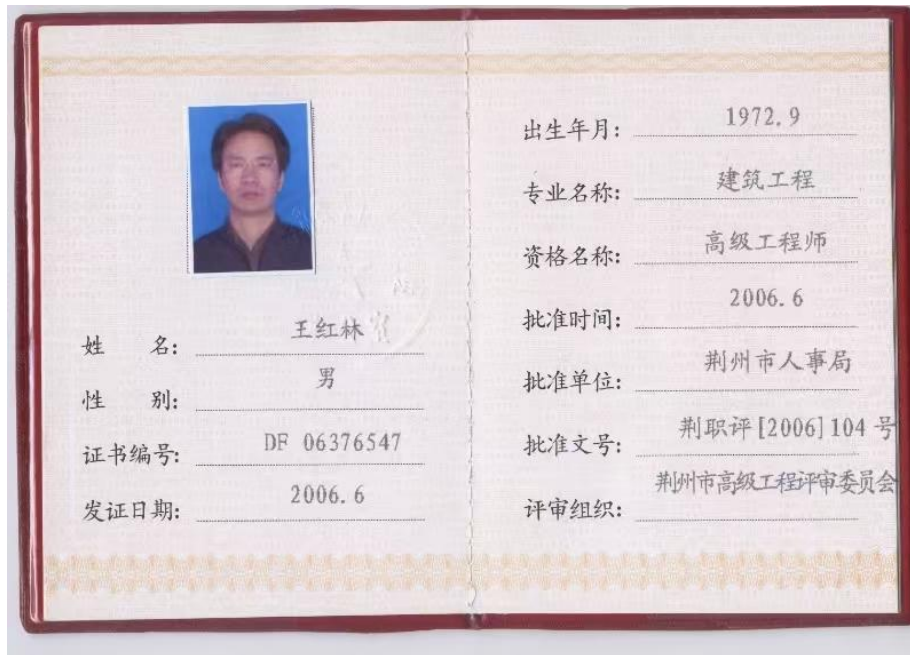 姓 名: 王红林
性 别: 男
证书编号: DF 06376547
发证日期: 2006.6
出生年月: 1972.9
专业名称: 建筑工程
资格名称: 高级工程师
批准时间: 2006.6
批准单位: 荆州市人事局
批准文号: 荆职评[2006]104号
评审组织: 荆州市高级工程评审委员会